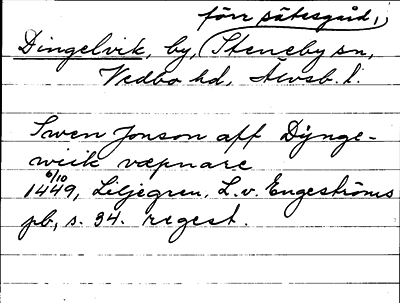 förr sätesgård,
Dingelvik, by, Steneby sn,
Vedbo hd, Älvsb. l.
Swen Jonson aff Dynge-
wiik wæpnare
6/10
1449, Liljegren, L. v. Engeströms
pb, s. 34. regest.